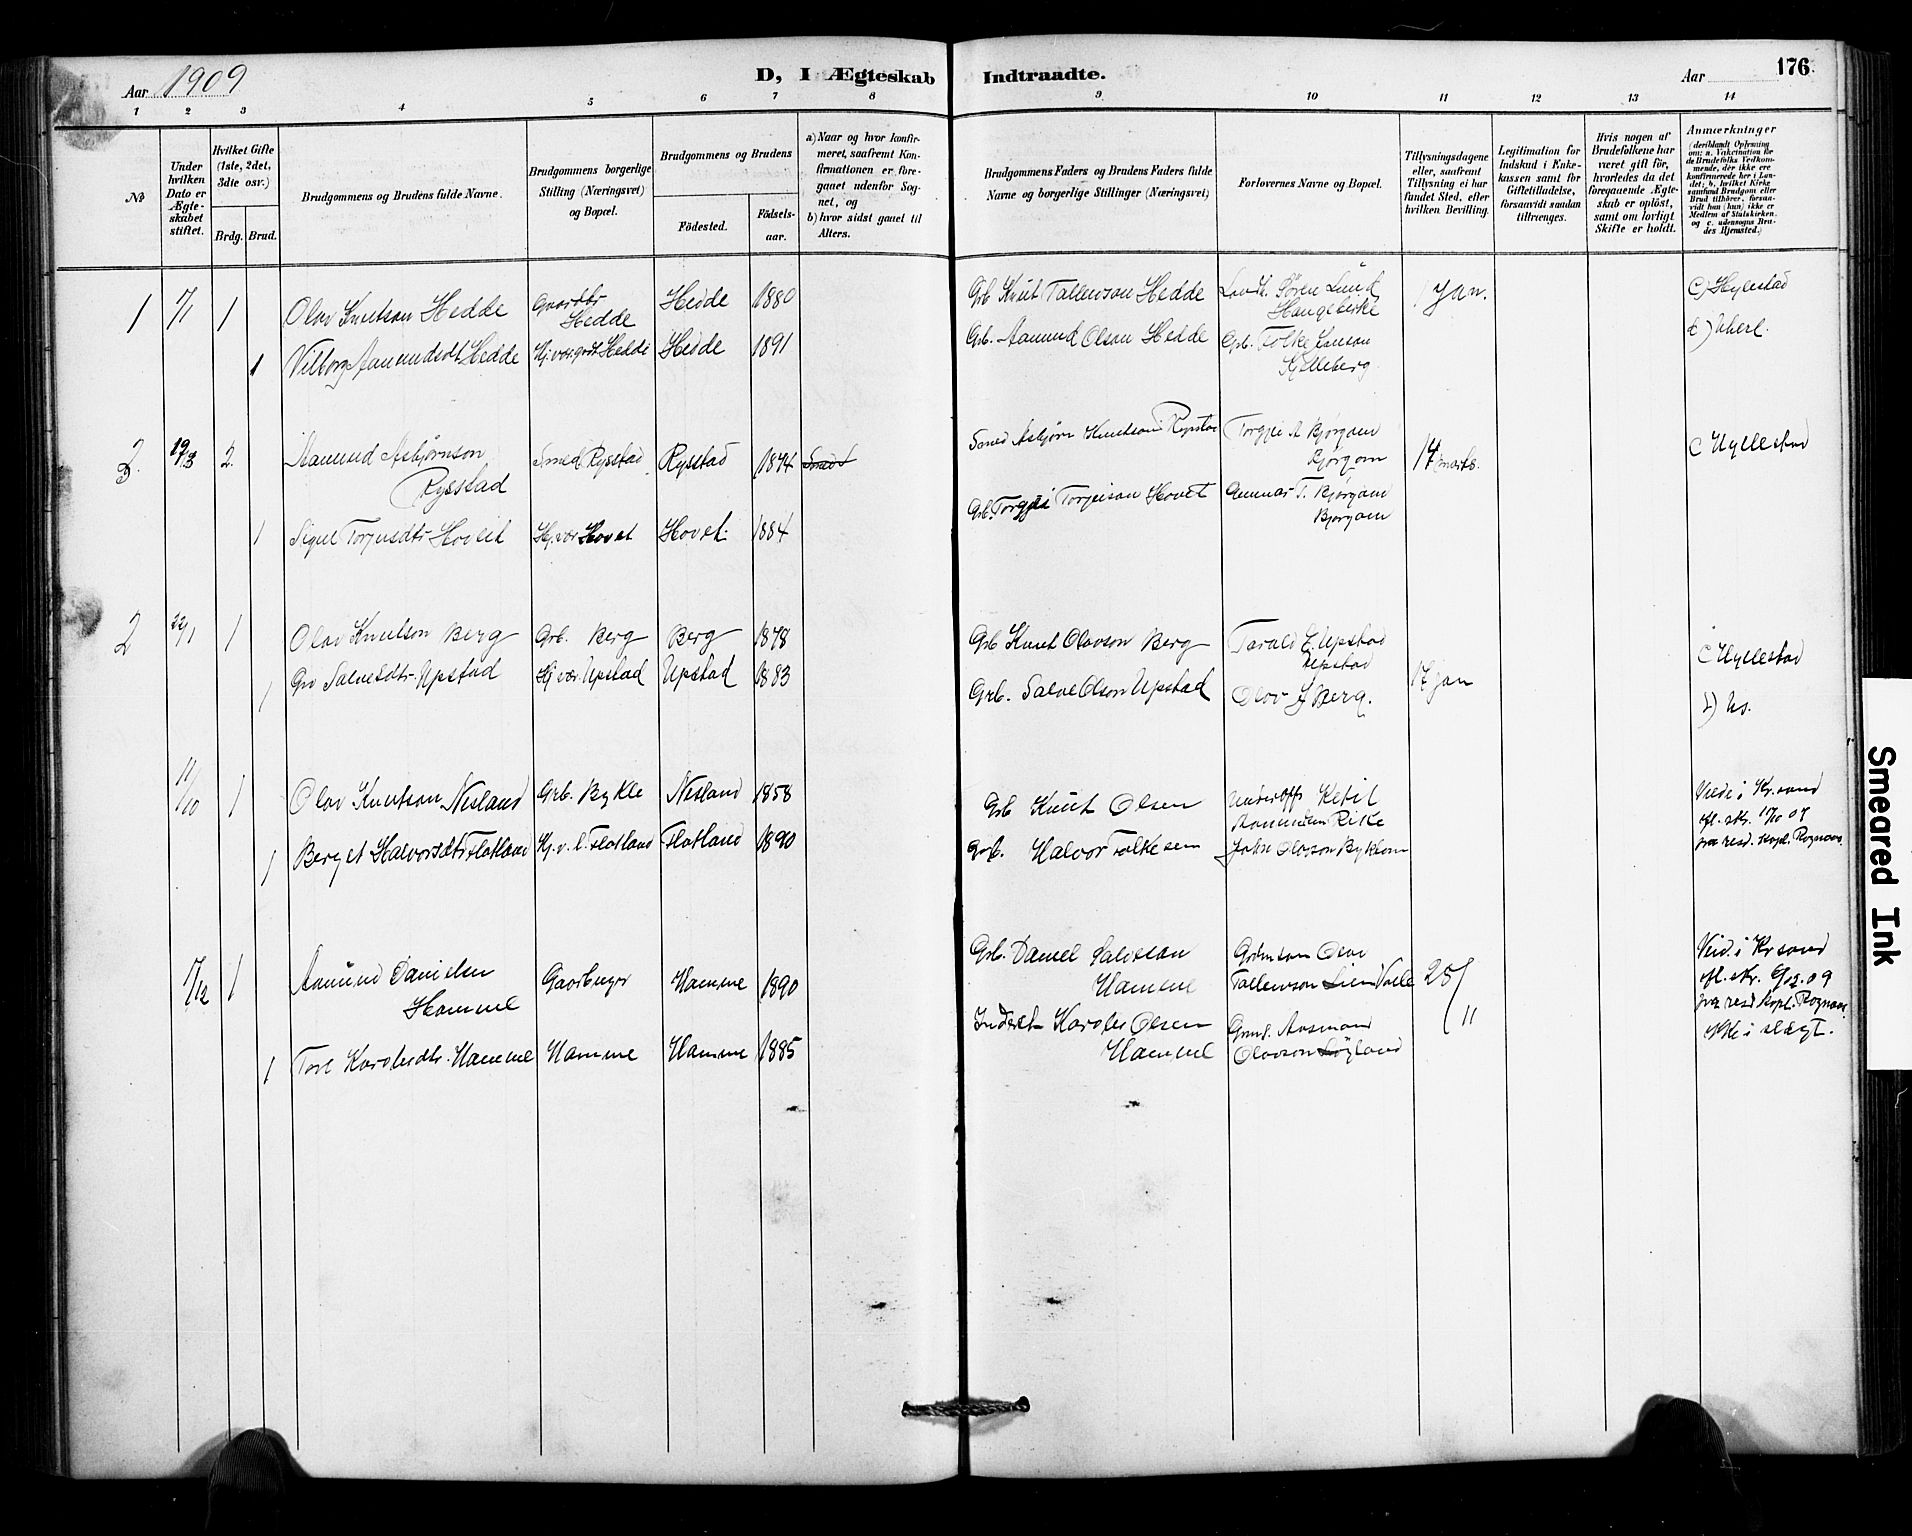 Aar 1909
D, I Ægteskab Indtraadte.
Aar 176.
1 2 3 4 5 6 7 8 9 10 11 12 13 14
No
Under hvilken Dato er Ægteskabet stiftet.
Hvilket Gifte (1ste, 2det, 3die osv.)
Brdg. Brud.
Brudgommens og Brudens fulde Navne.
Brudgommens borgerlige Stilling (Næringsvet) og Bopæl.
Brudgommens og Brudens
Födested.
Födselsaar.
a) Naar og hvor konfirmeret, saafremt Konfirmationen er foregaaet udenfor Sognet, og
b) hvor sidst gaaet til Alters.
Brudgommens Faders og Brudens Faders fulde Navne og borgerlige Stillinger (Næringsvet)
Forlovernes Navne og Bopæl.
Tillysningsdagene eller, saafremt Tillysning ei har fundet Sted, efter hvilken Bevilling.
Legitimation for Indskud i Enkekassen samt for Giftetilladelse, forsaavidt saadan tiltrænges.
Hvis nogen af Brudefolkene har været gift för, hvorledes da det foregaaende Ægteskab er oplöst, samt om lovligt Skifte er holdt.
Anmærkninger (deriblandt Oplysning om: a. Vakcination for de Brudefolks Vedkommende, der ikke ere konfirmerede her i Landet; b. hvilket Kirkesamfund Brudgom eller Brud tilhörer, forsaavidt han (hun) ikke er Medlem af Statskirken, og c. udensogns Brudes Hjemsted.)
1 7/1 1 Olav Knutson Hedde Gaardbr. Hedde Hedde 1880 Grb Knut Tallemson Hedde Søren Lund Haugekirke Jan. C) Hylestad
1 Vilborg Aamundsdt Hedde Hedde Hedde 1891 Grb. Aamund Olson Hedde Grb. Folke Kjelleberg
3. 19/3 2. Aamund Asbjørnson Rysstad Smed Rysstad Rysstad 1874 Smed Asbjørn Knutson Rysstad Torgjei A Bjørgom Bjørgom 14 marts. C Hyllestad
1 Sigrid Torjusdtr Hoveit Hj. vær Hovet Hovet 1884 Grb. Torgjei Torjeison Hovet Gunnar T. Bjørgom Bjørgom
2 22/1 1 Olav Knutson Berg Grb. Berg Berg 1878 Grb Knut Olavson Berg Tarald E. Upstad Upstad 17 jan C Hyllestad
1 Gro Salvesdtr Upstad Hj. vær. Upstad Upstad 1883 Grb. Salve Olson Upstad Olav Berg.
11/10 1 Olav Knutson Nesland Grb. Bykle Nesland 1858 Grb Knut Olsen Underoff. Ketil Rike Viede i Kr.sand
1 Berget Halvorsdtr Flatland Hj. v. Flatland Flatland 1890 Grb. Halvor Folkesen John Olavson Byklum fra resd. kapl. Rognaas.
7/12 1 Aamund Danielsen Homme Gaardbruger Homme 1890 Grb. Daniel Salveson Homme Olav Tallevson Lien Valle 25/11 Vied. i Kr.sand
1 Tore Karolusdtr. Homme Homme Homme 1885 Inderst Karolus Olsen Homme Aasmund Olavson fra resd. kapl. Rognaas.
Ikke i slægt.
Smeared Ink